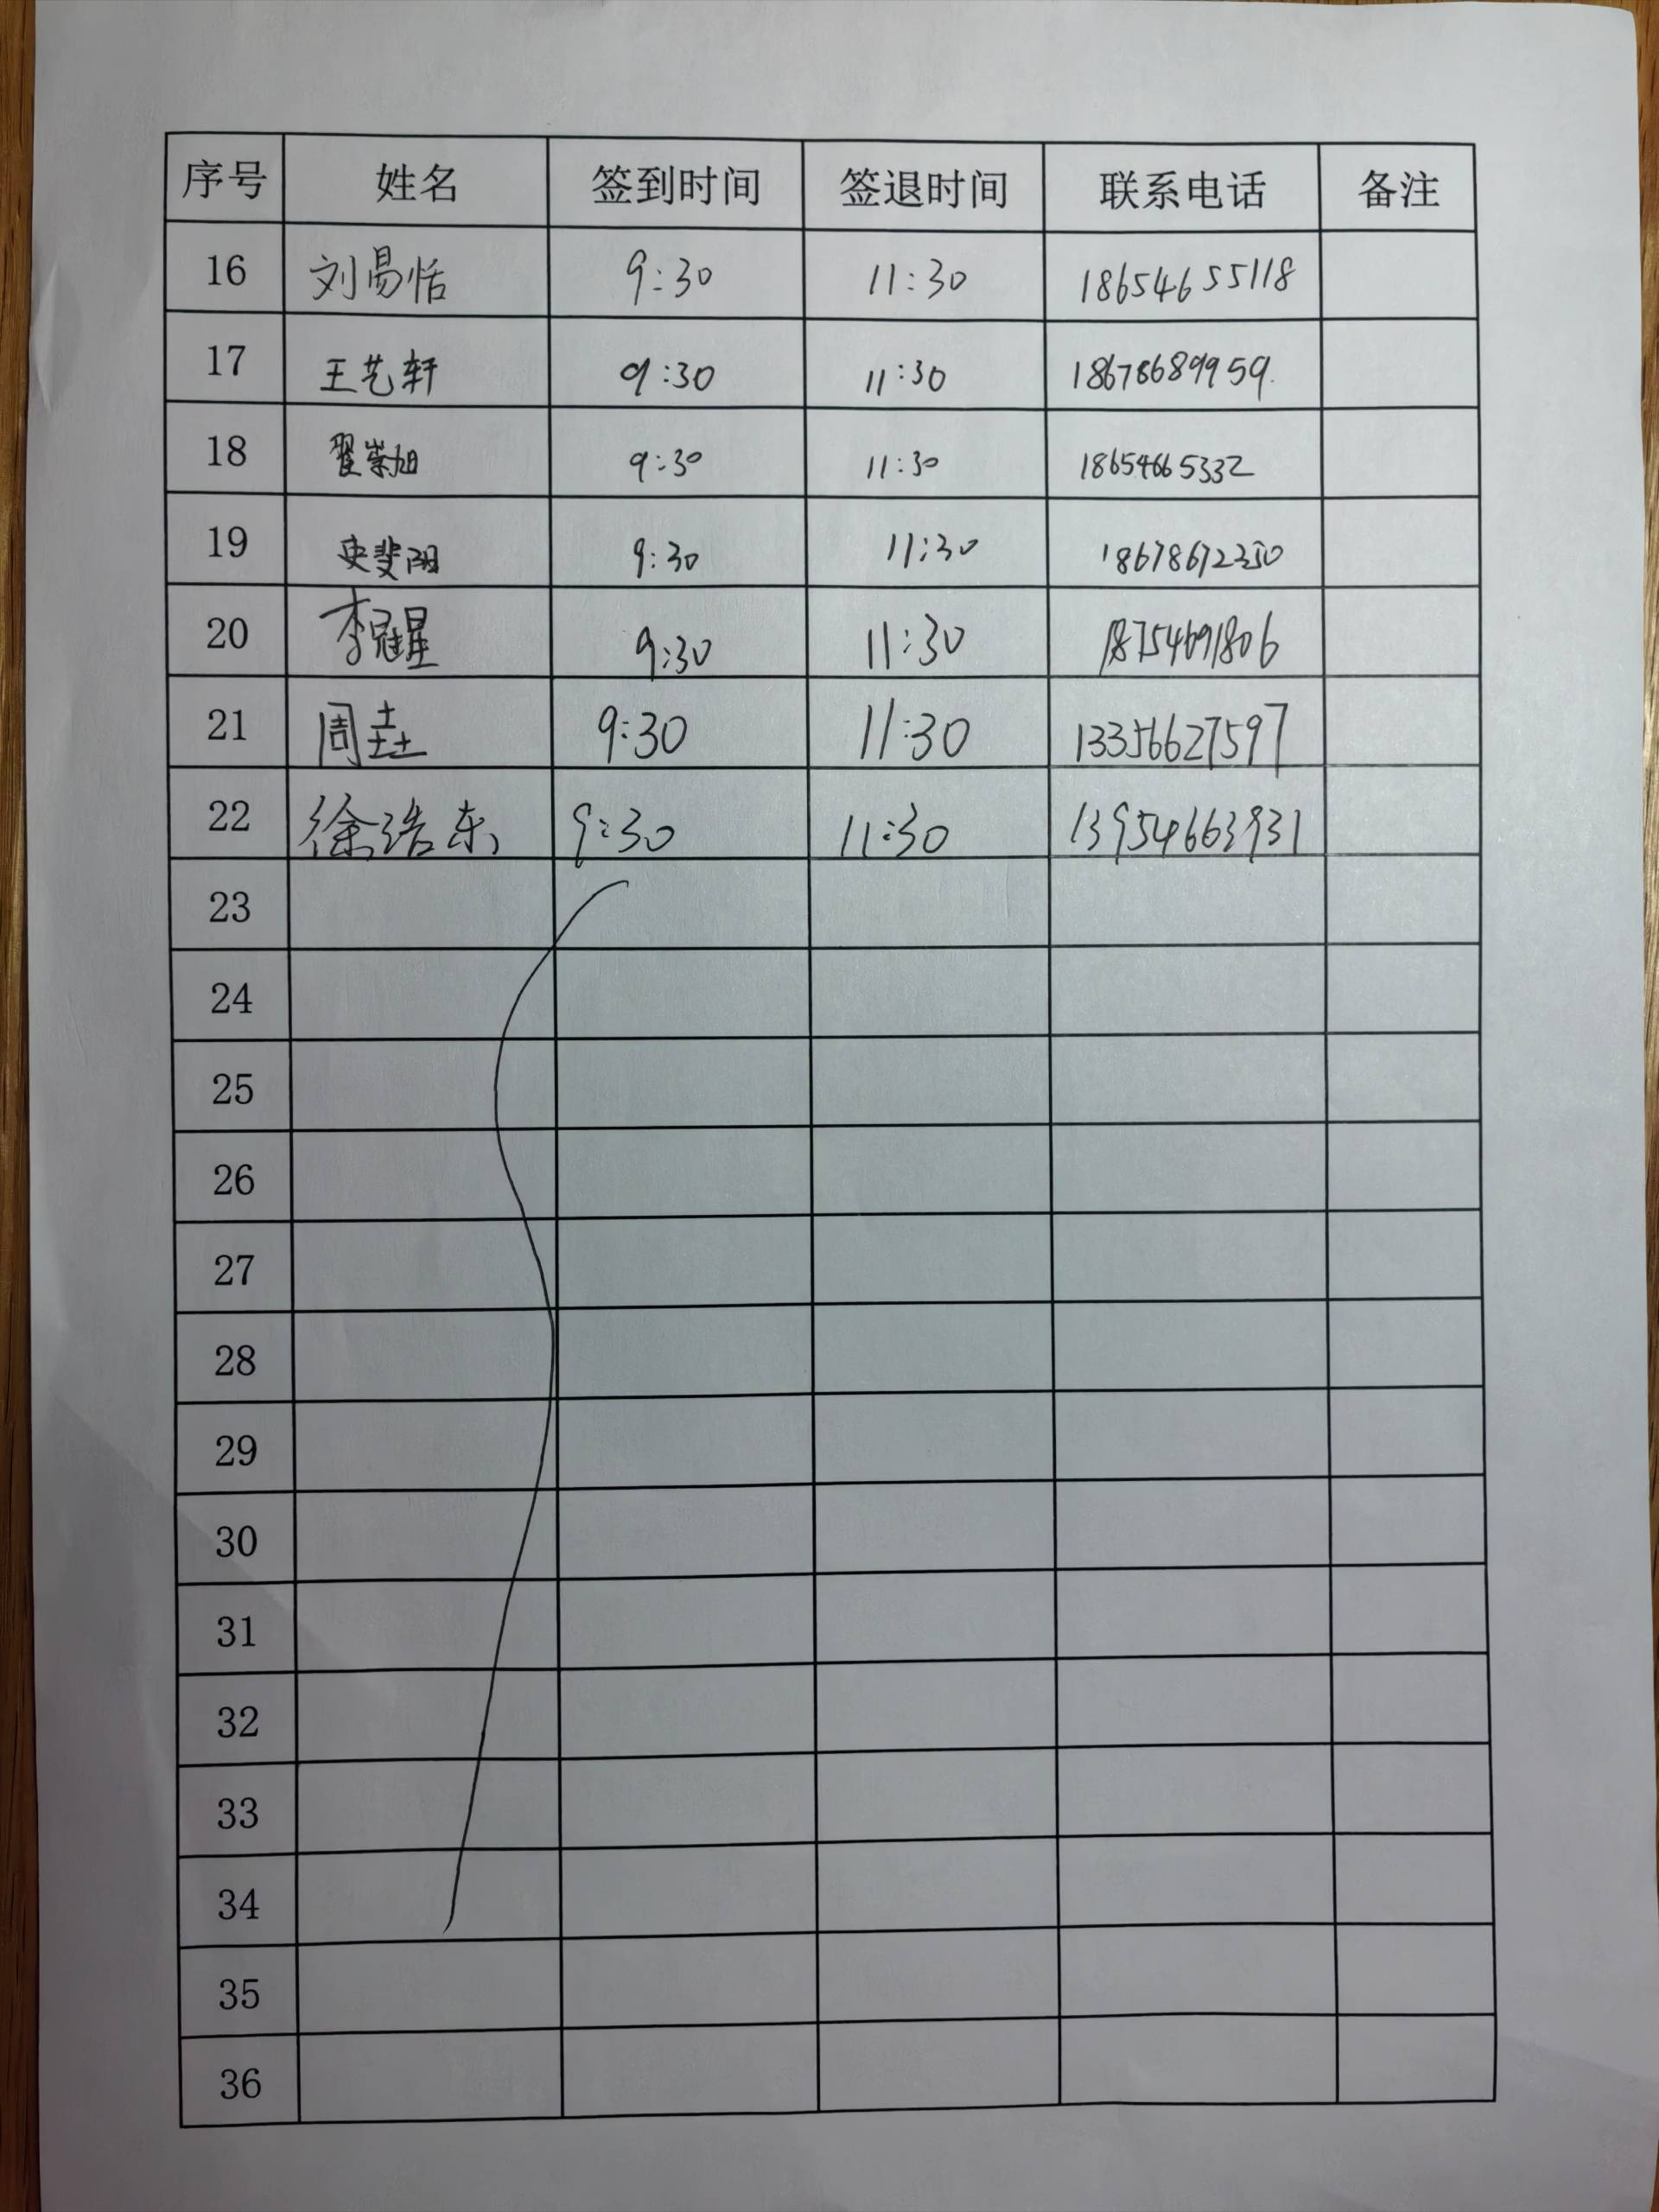 序号 姓名 签到时间 签退时间 联系电话 备注
16 刘易恬 9:30 11:30 18654655118
17 王艺轩 9:30 11:30 18678689959
18 翟崇旭 9:30 11:30 18654665332
19 史斐阳 9:30 11:30
20 李冠星 9:30 11:30 18754691806
21 周垚 9:30 11:30 13356627597
22 徐浩东 9:30 11:30 13954663931
23
24
25
26
27
28
29
30
31
32
33
34
35
36